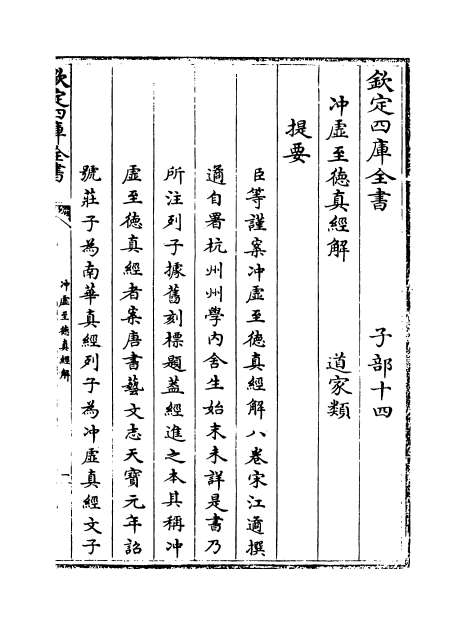 欽定四庫全書　子部十四
冲虛至徳真經解　道家類
提要
臣等謹案冲虛至徳真經解八卷宋江遹撰
遹自署杭州州學内舍生始末未詳是書乃
所注列子據舊刻標題葢經進之本其稱冲
虛至徳真經者案唐書藝文志天寶元年詔
號莊子為南華真經列子為冲虛真經文子
欽定四庫全書
冲虛至徳真經解
一